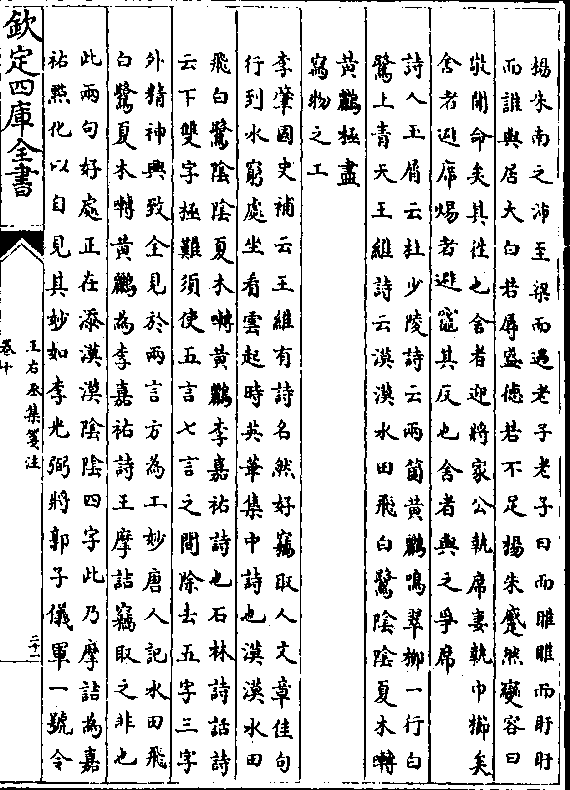 揚朱南之沛至梁而遇老子老子曰而睢睢而盱盱
而誰與居大白若辱盛德若不足揚朱蹵然變容曰
敬聞命矣其往也舍者迎將家公執席妻執巾櫛矣
舍者避席煬者避竈其反也舍者與之爭席
詩人玉屑云杜少陵詩云兩箇黃鸝鳴翠柳一行白
鷺上青天王維詩云漠漠水田飛白鷺陰陰夏木囀
黃鸝極盡
寫物之工
李肇國史補云王維有詩名然好竊取人文章佳句
行到水窮處坐看雲起時英華集中詩也漠漠水田
飛白鷺陰陰夏木囀黃鸝李嘉祐詩也石林詩話詩
云下雙字極難須使五言七言之間除去五字三字
外精神興致全見於兩言方為工妙唐人記水田飛
白鷺夏木囀黃鸝為李嘉祐詩王摩詰竊取之非也
此兩句好處正在添漠漠陰陰四字此乃摩詰為嘉
祐㸃化以自見其妙如李光弼將郭子儀軍一號令
欽定四庫全書
王右丞集箋注
卷十
二十一